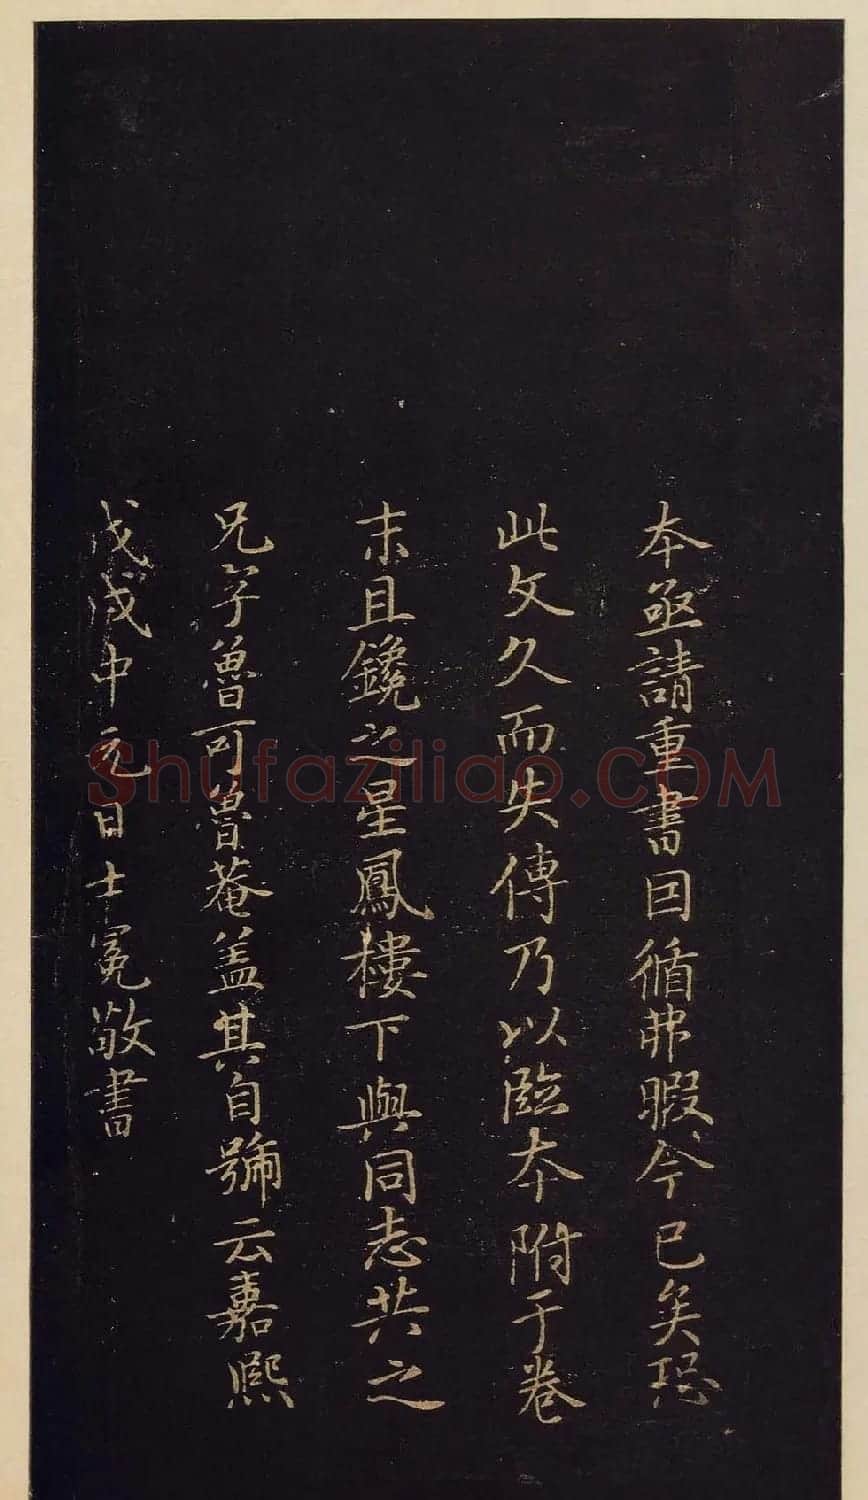 本亟請重書因循弗暇今已矣恐
此文久而失傳乃以臨本附于卷
末且鑱之星鳳樓下與同志共之
兄字魯可魯菴蓋其自號云嘉熙
戊戌中元日士冕敬書
Shufaziliao.COM